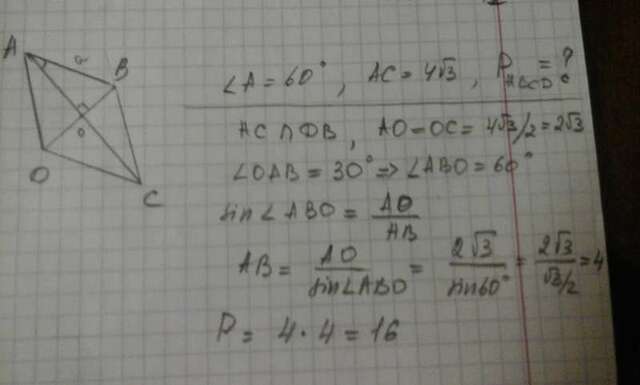 A a B
O
D C
∠A = 60°, AC = 4√3, P ABCD = ?
AC ∩ DB, AO = OC = 4√3/2 = 2√3
∠OAB = 30° => ∠ABO = 60°
sin∠ABO = AO/AB
AB = AO/sin∠ABO = 2√3/sin60° = 2√3/√3/2 = 4
P = 4 · 4 = 16